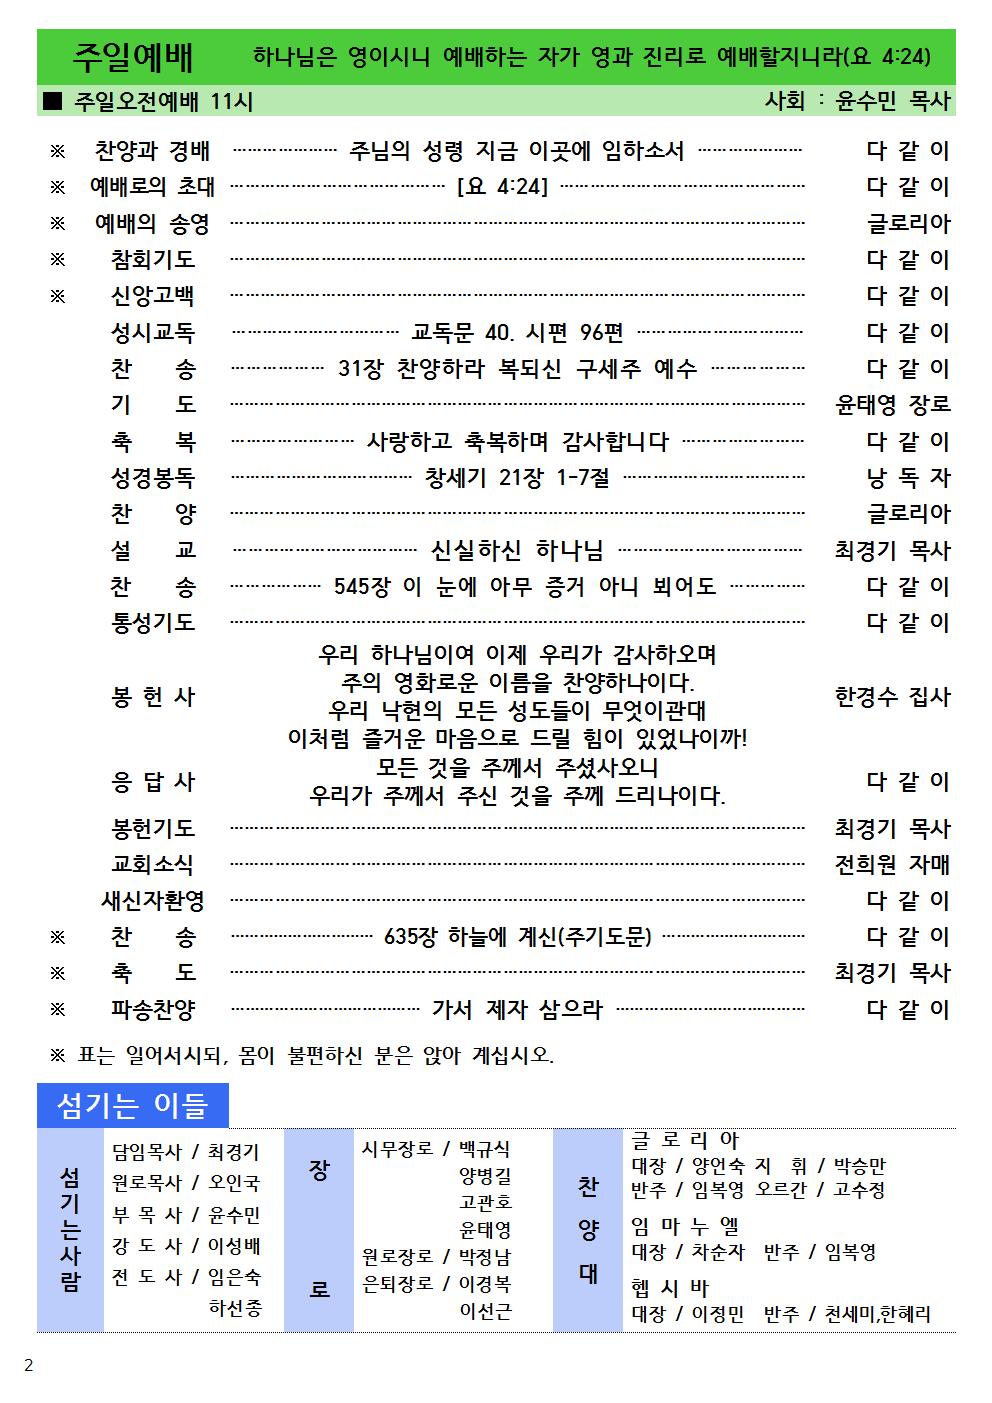 주일예배 하나님은 영이시니 예배하는 자가 영과 진리로 예배할지니라(요 4:24)
■ 주일오전예배 11시 사회 : 윤수민 목사
※ 찬양과 경배 ………………… 주님의 성령 지금 이곳에 임하소서 ………………… 다 같 이
※ 예배로의 초대 …………………………………… [요 4:24] ………………………………………… 다 같 이
※ 예배의 송영 …………………………………………………………………………………………………… 글로리아
※ 참회기도 …………………………………………………………………………………………………… 다 같 이
※ 신앙고백 …………………………………………………………………………………………………… 다 같 이
성시교독 …………………………… 교독문 40. 시편 96편 …………………………… 다 같 이
찬 송 ……………… 31장 찬양하라 복되신 구세주 예수 ……………… 다 같 이
기 도 …………………………………………………………………………………………………… 윤태영 장로
축 복 …………………… 사랑하고 축복하며 감사합니다 …………………… 다 같 이
성경봉독 ……………………………… 창세기 21장 1-7절 ……………………………… 낭 독 자
찬 양 …………………………………………………………………………………………………… 글로리아
설 교 ……………………………… 신실하신 하나님 ……………………………… 최경기 목사
찬 송 ……………… 545장 이 눈에 아무 증거 아니 뵈어도 …………… 다 같 이
통성기도 …………………………………………………………………………………………………… 다 같 이
우리 하나님이여 이제 우리가 감사하오며
주의 영화로운 이름을 찬양하나이다.
봉 헌 사 한경수 집사
우리 낙현의 모든 성도들이 무엇이관대
이처럼 즐거운 마음으로 드릴 힘이 있었나이까!
모든 것을 주께서 주셨사오니
응 답 사 다 같 이
우리가 주께서 주신 것을 주께 드리나이다.
봉헌기도 …………………………………………………………………………………………………… 최경기 목사
교회소식 …………………………………………………………………………………………………… 전희원 자매
새신자환영 …………………………………………………………………………………………………… 다 같 이
※ 찬 송 ………………………… 635장 하늘에 계신(주기도문) ………………………… 다 같 이
※ 축 도 …………………………………………………………………………………………………… 최경기 목사
※ 파송찬양 ………………………………… 가서 제자 삼으라 ………………………………… 다 같 이
※ 표는 일어서시되, 몸이 불편하신 분은 앉아 계십시오.
섬기는 이들
섬기는사람
담임목사 / 최경기
원로목사 / 오인국
부 목 사 / 윤수민
강 도 사 / 이성배
전 도 사 / 임은숙
하선종
장로
시무장로 / 백규식
양병길
고관호
윤태영
원로장로 / 박정남
은퇴장로 / 이경복
이선근
찬양대
글 로 리 아
대장 / 양언숙 지 휘 / 박승만
반주 / 임복영 오르간 / 고수정
임 마 누 엘
대장 / 차순자 반주 / 임복영
헵 시 바
대장 / 이정민 반주 / 천세미,한혜리
2